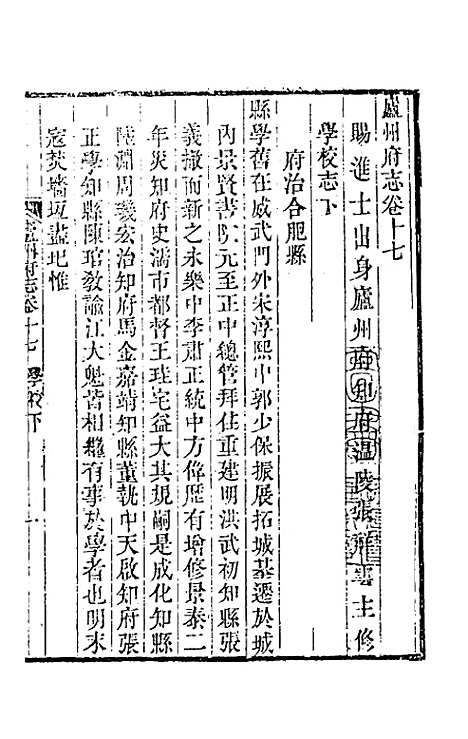 廬州府志卷十七
賜進士出身廬州府知府溫陵張祥雲主修
學校志下
府治合肥縣
縣學舊在威武門外宋淳熙中郭少保振展拓城基遷於城
內景賢書院元至正中總管拜住重建明洪武初知縣張
義撤而新之永樂中李肅正統中方偉歷有增修景泰二
年災知府史濡市都督王珪宅益大其規嗣是成化知縣
陸淵周義宏治知府馬金嘉靖知縣董執中天啟知府張
正學知縣陳琯敎諭江大魁皆相繼有事於學者也明末
寇焚墻垣盡圮惟
廬州府志卷十七 學校下 一